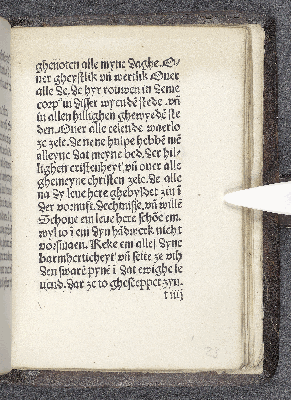 ghenoten alle myne daghe. O-
uer gheystlik vñ wertlik Ouer
alle de. de hyr rouwen in deme
coep in disser wẽdẽ stede. vñ
in allen hillighen ghewyedẽ ste
den. Ouer alle eelende waerlo
ze zele. de nene hulpe hebbẽ mẽ
alleyne dat meyne bed. der hil-
lighen cristenheyt. vñ ouer alle
ghemeyne christen zele. de alle
na dy leue here ghebyldet zin ĩ
der vornuft. dechtnisse. vñ wille
Schone em leue here schõe em.
wyl io ĩ em dyn hãdwerk nicht
vorsmaen. Reke em alle dyne
barmherticheyt vñ sette ze vth
den swarẽ pynẽ ĩ dat ewighe le
uend. dar ze to gheschepet zyn.
t iiij
23